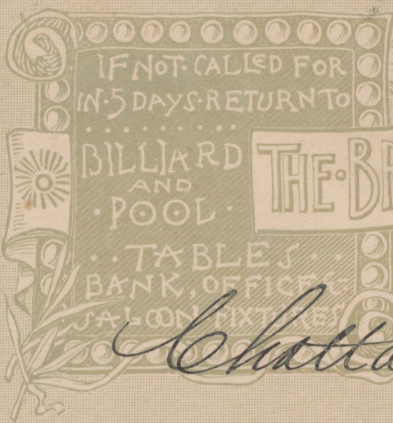 IF NOT CALLED FOR
IN·5 DAYS·RETURN TO
BILLIARD
AND
·POOL·
THE·BR
··TABLES··
BANK, OFFICE &
SALOON FIXTURES
Chatta